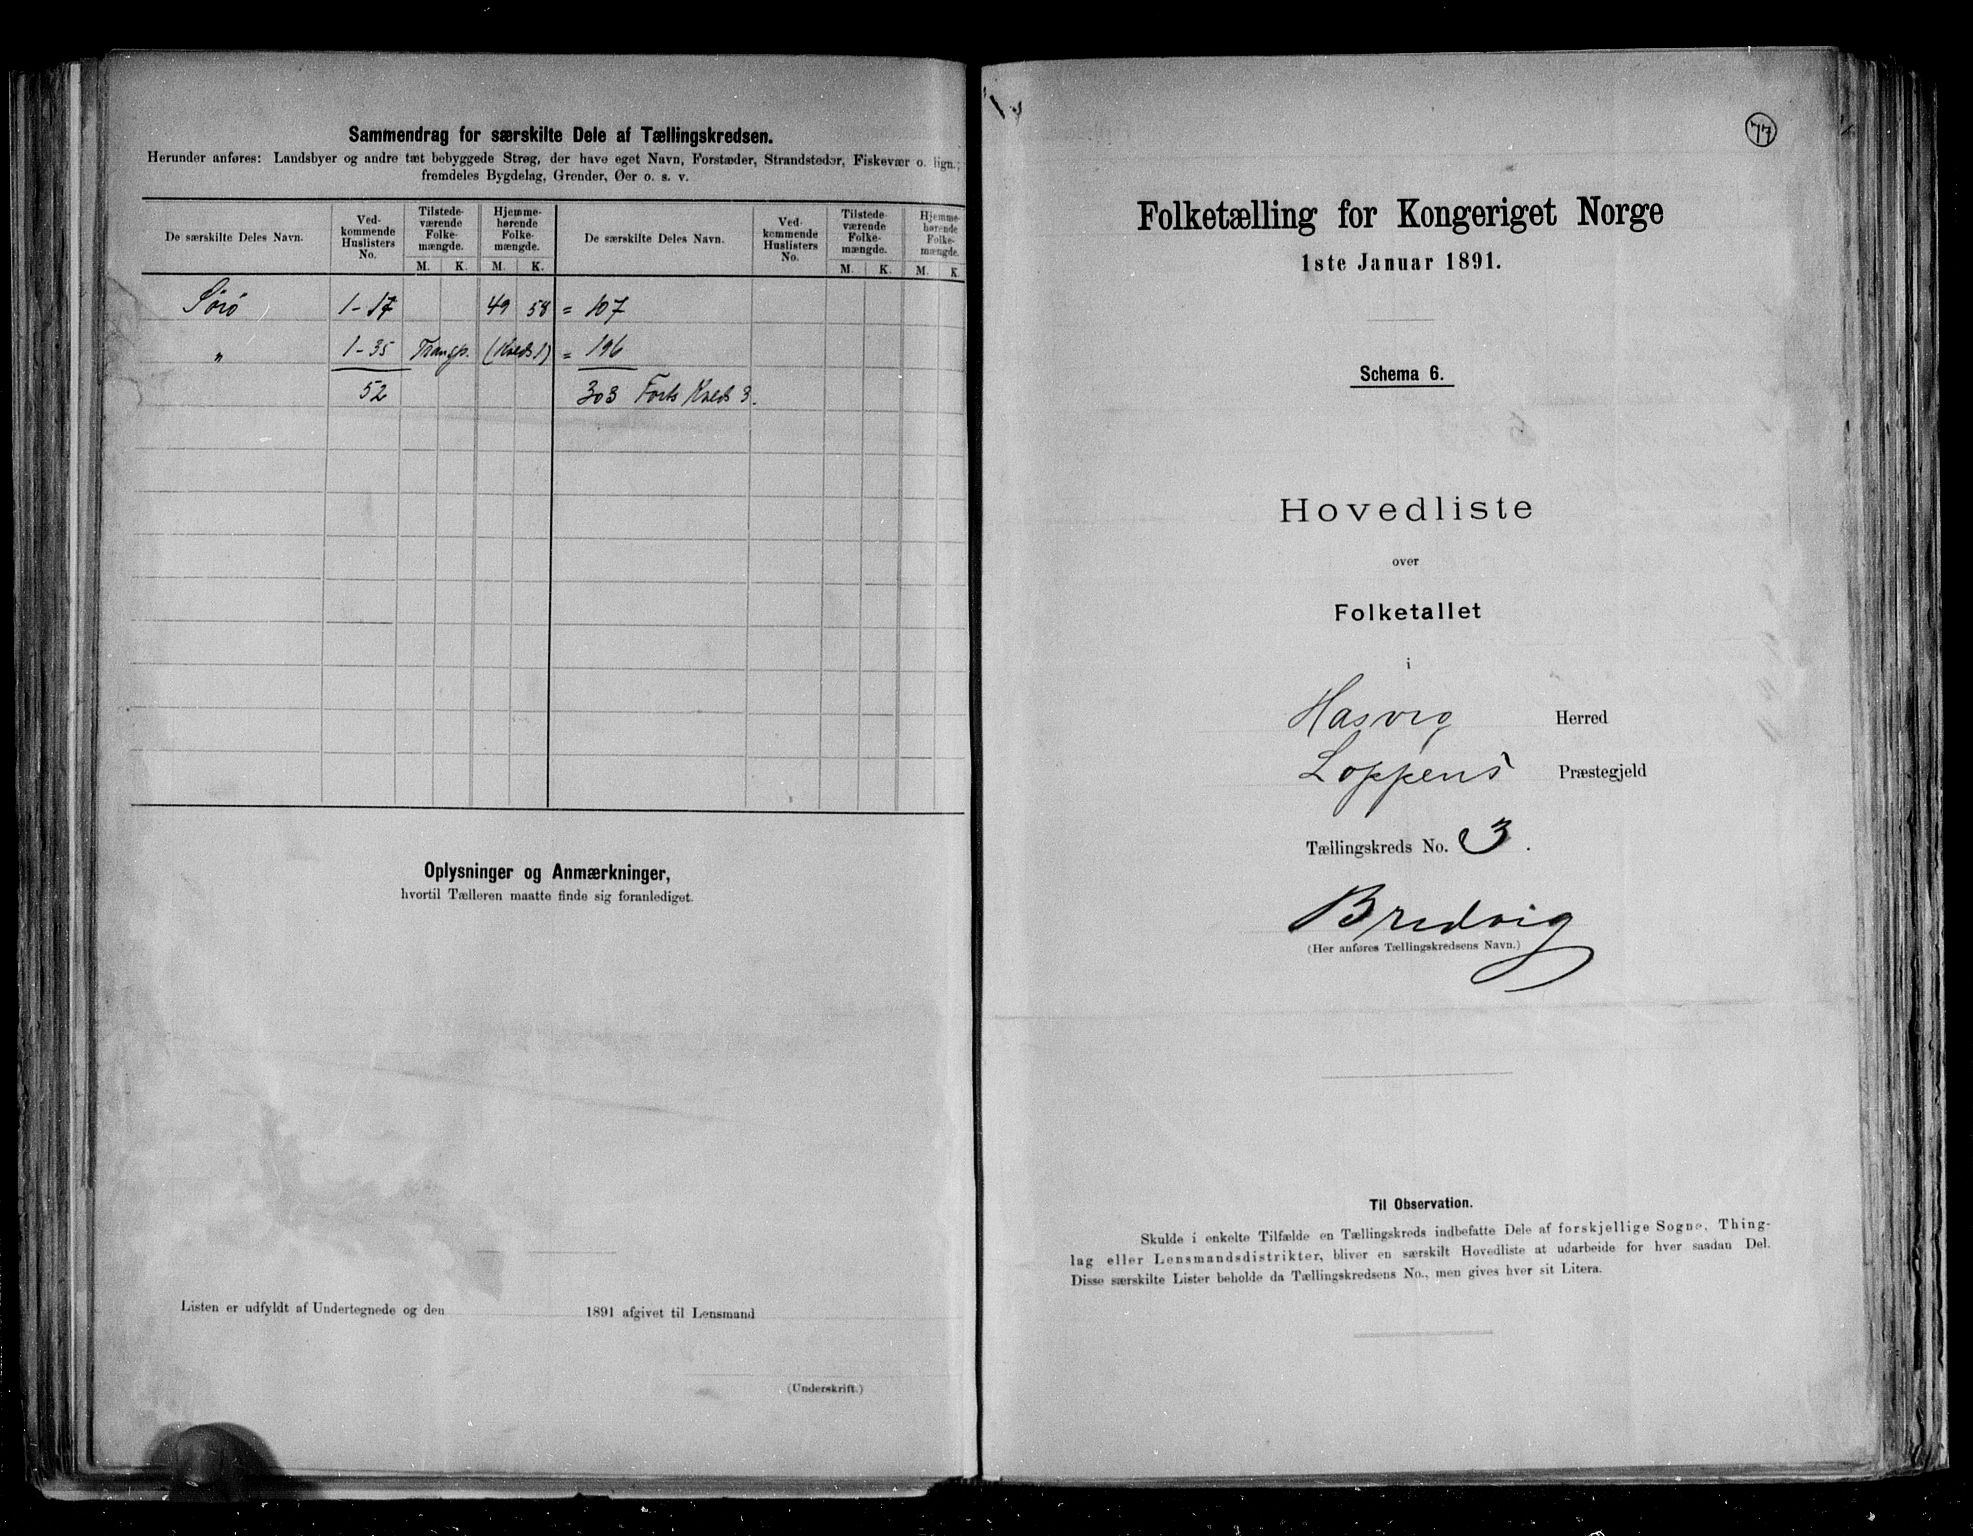 Sammendrag for særskilte Dele af Tællingskredsen.
Herunder anføres: Landsbyer og andre tæt bebyggede Strøg, der have eget Navn, Forstæder, Strandsteder, Fiskevær o. lign.,
fremdeles Bygdelag, Grender, Øer o. s. v.
De særskilte Deles Navn. Ved-kommende Huslisters No. Tilstede-værende Folke-mængde. Hjemme-hørende Folke-mængde. De særskilte Deles Navn. Ved-kommende Huslisters No. Tilstede-værende Folke-mængde. Hjemme-hørende Folke-mængde.
M. K. M. K. M. K. M. K.
Sørø 1-17 49 58 = 107
" 1-35 Transp. (Kreds 1) = 196
52 303 Forts Kreds 3.
Oplysninger og Anmærkninger,
hvortil Tælleren maatte finde sig foranlediget.
Listen er udfyldt af Undertegnede og den 1891 afgivet til Lensmand
(Underskrift.)
77
Folketælling for Kongeriget Norge
1ste Januar 1891.
Schema 6.
Hovedliste
over
Folketallet
i
Hasvig Herred
Loppens Præstegjeld
Tællingskreds No. 3.
Bredvig
(Her anføres Tællingskredsens Navn.)
Til Observation.
Skulde i enkelte Tilfælde en Tællingskreds indbefatte Dele af forskjellige Sogne, Thing-
lag eller Lensmandsdistrikter, bliver en særskilt Hovedliste at udarbeide for hver saadan Del.
Disse særskilte Lister beholde da Tællingskredsens No., men gives hver sit Litera.